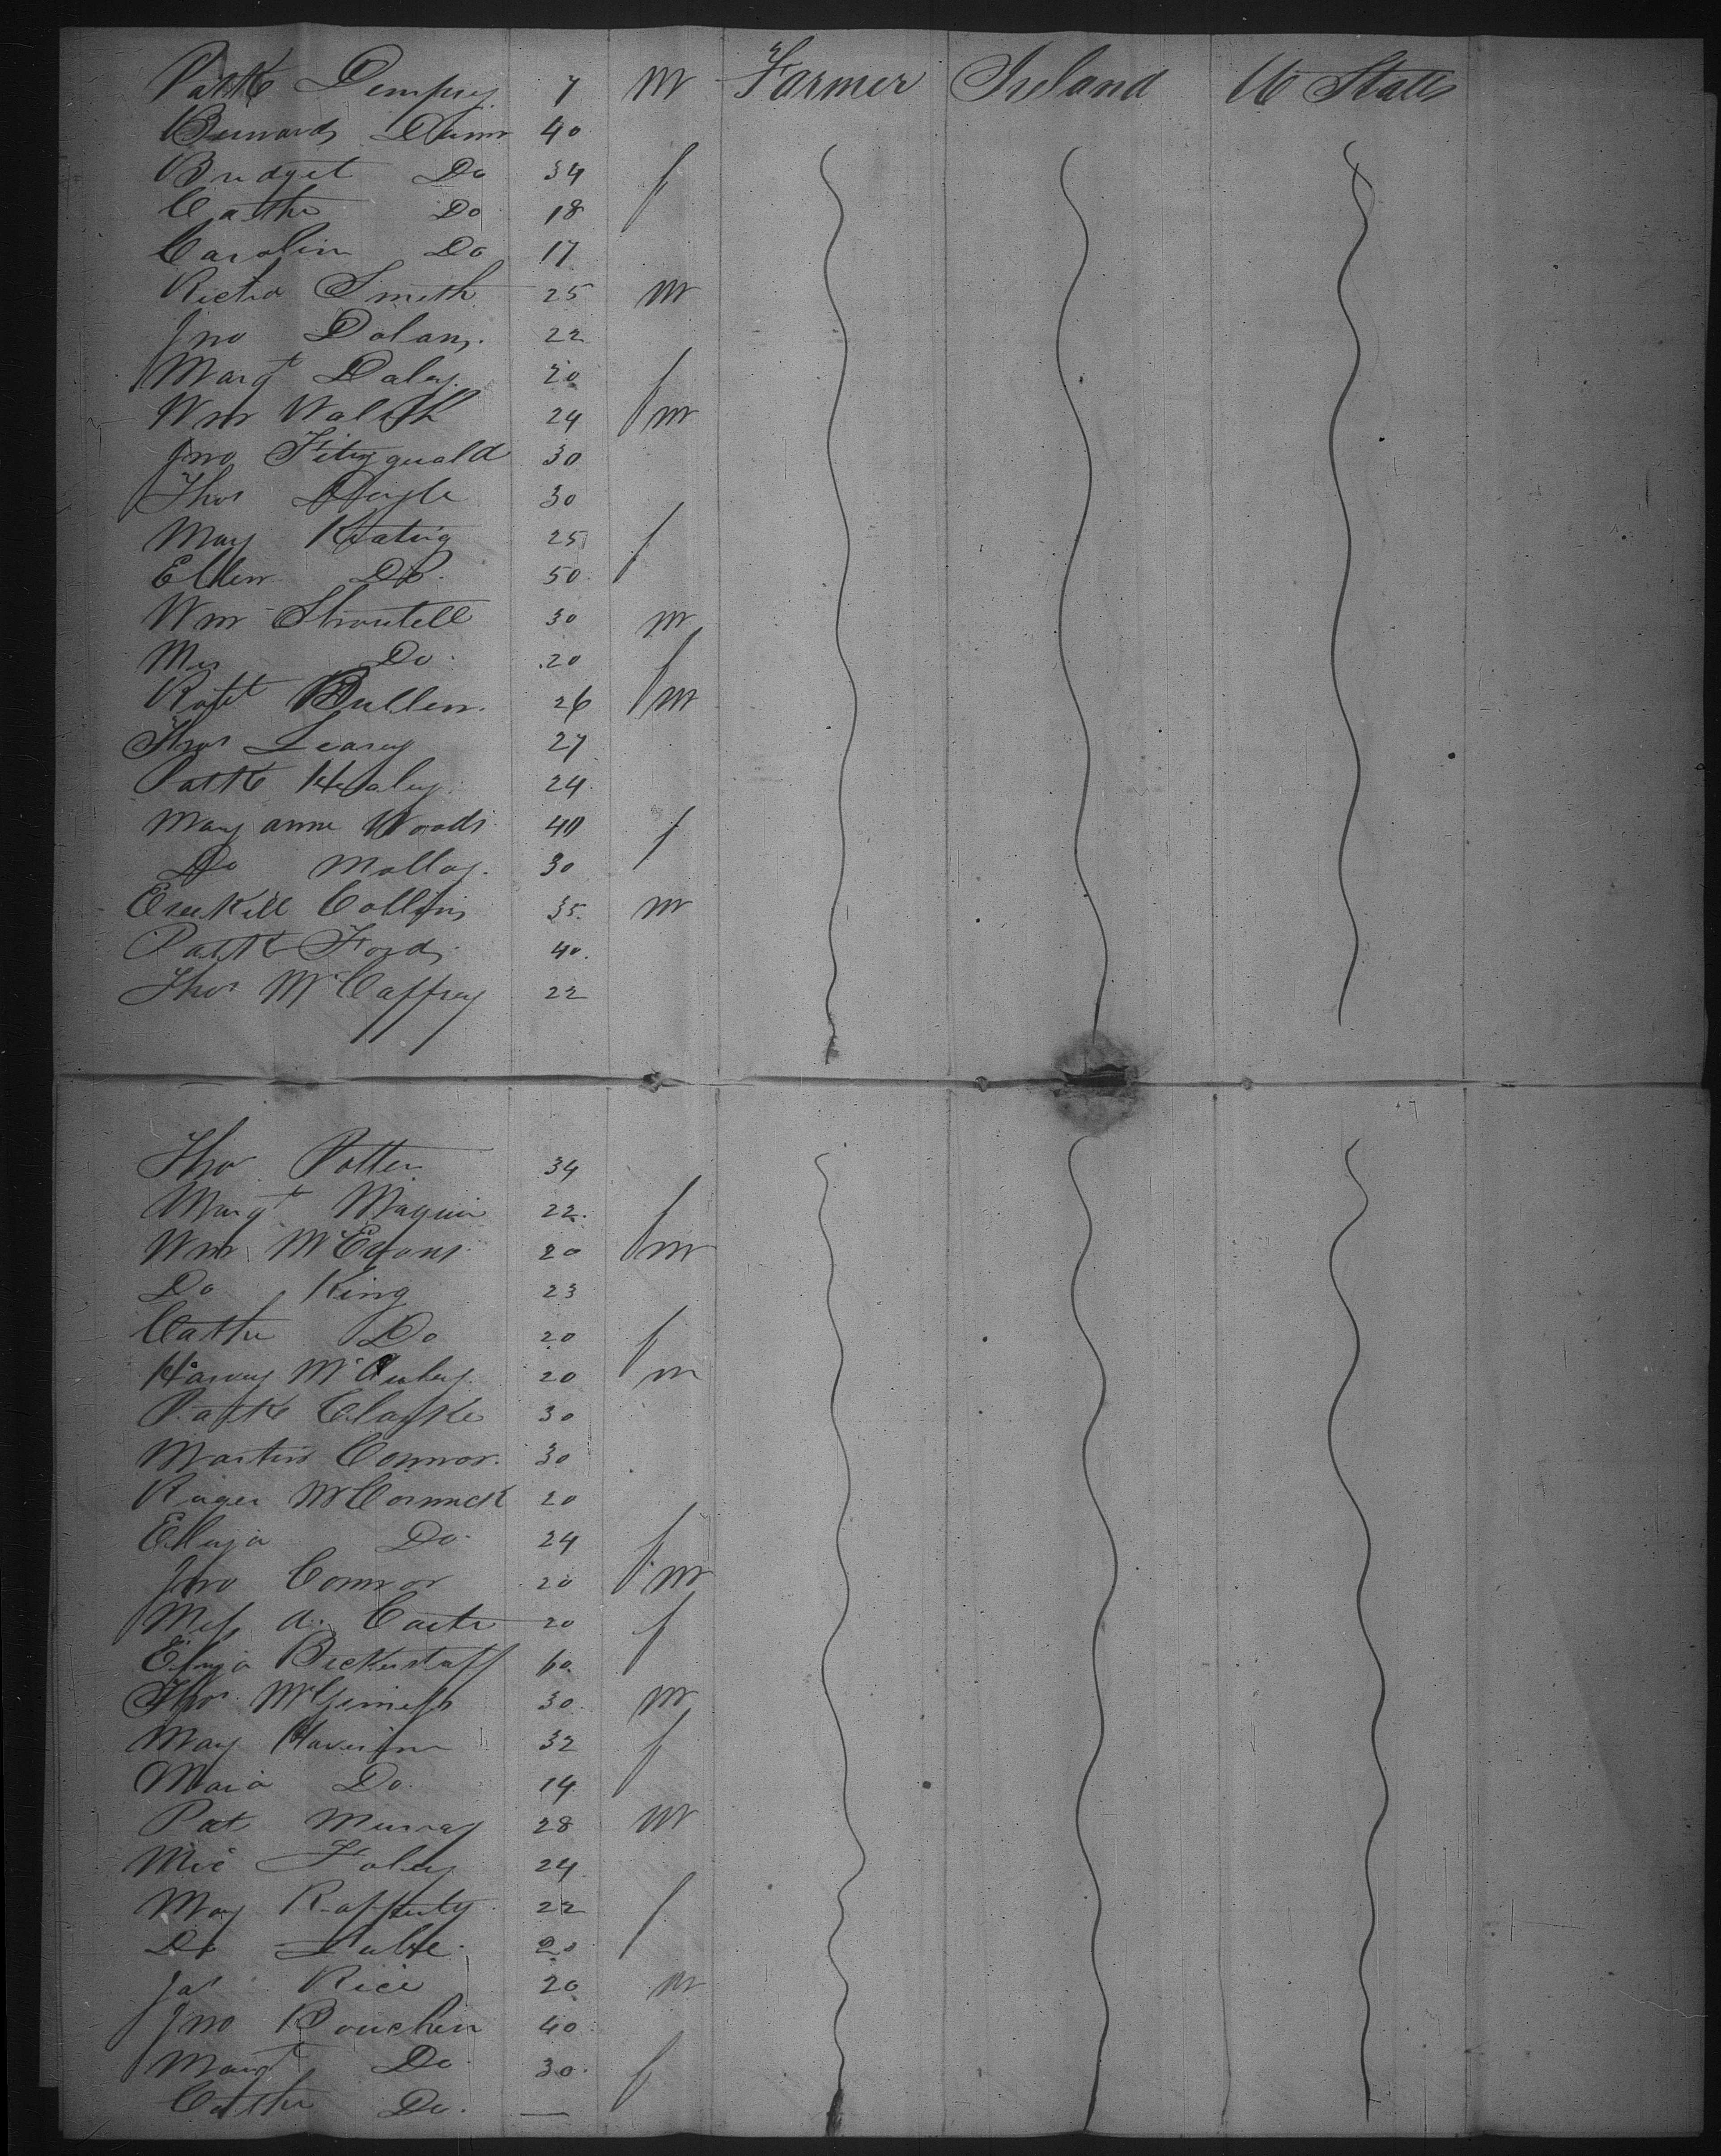 Patk Dempsey 7 m Farmer Ireland U States
Bernard Dunn 40
Bridget Do 34 f
Cathe Do 18
Carolin Do 17
Richd Smith 25 m
Jno Dolan 22
Margt Daley 20 f
Wm Walsh 24 m
Jno Fitzgerald 30
Thos Doyle 30
Mary Keating 25 f
Ellen Do 50
Wm 30 m
Mrs Do 20 f
Robt Bullen 26 m
Thos Leary 27
Patk Healey 24
Mary anne Woods 40 f
Do Molloy 30
Collins 35 m
Patk Ford 40
Thos McCaffrey 22
Thos Potter 34
Margt Maguir 22 f
Wm 20 m
Do King 23
Cathe Do 20 f
Harvey 20 m
Patk Clarke 30
Martin Connor 30
Roger McCormick 20
Do 24 f
Jno Connor 20 m
Miss A. 20 f
Eliza Bickerstaff 60
Thos McGuiness 30 m
Mary 32 f
Maria Do 14
Pat Murray 28 m
Mic Foley 24
Mary Rafferty 22 f
Do 20
Jas Rice 20 m
Jno 40
Margt Do 30 f
Cathe Do —